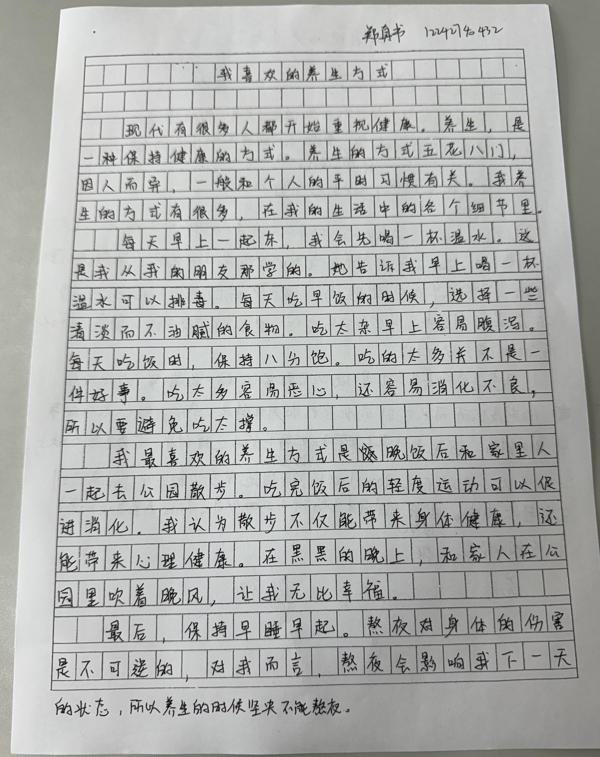 郑具书 12242740432
我喜欢的养生方式
现代有很多人都开始重视健康。养生，是
一种保持健康的方式。养生的方式五花八门，
因人而异，一般和个人的平时习惯有关。我养
生的方式有很多，在我的生活中的各个细节里。
每天早上一起床，我会先喝一杯温水。这
是我从我的朋友那学的。她告诉我早上喝一杯
温水可以排毒。每天吃早饭的时候，选择一些
清淡而不油腻的食物。吃太杂早上容易腹泻。
每天吃饭时，保持八分饱。吃的太多并不是一
件好事。吃太多容易恶心，还容易消化不良，
所以要避免吃太撑。
我最喜欢的养生方式是晚饭后和家里人
一起去公园散步。吃完饭后的轻度运动可以促
进消化。我认为散步不仅能带来身体健康，还
能带来心理健康。在黑黑的晚上，和家人在公
园里吹着晚风，让我无比幸福。
最后，保持早睡早起。熬夜对身体的伤害
是不可逆的，对我而言，熬夜会影响我下一天
的状态，所以养生的时候坚决不能熬夜。